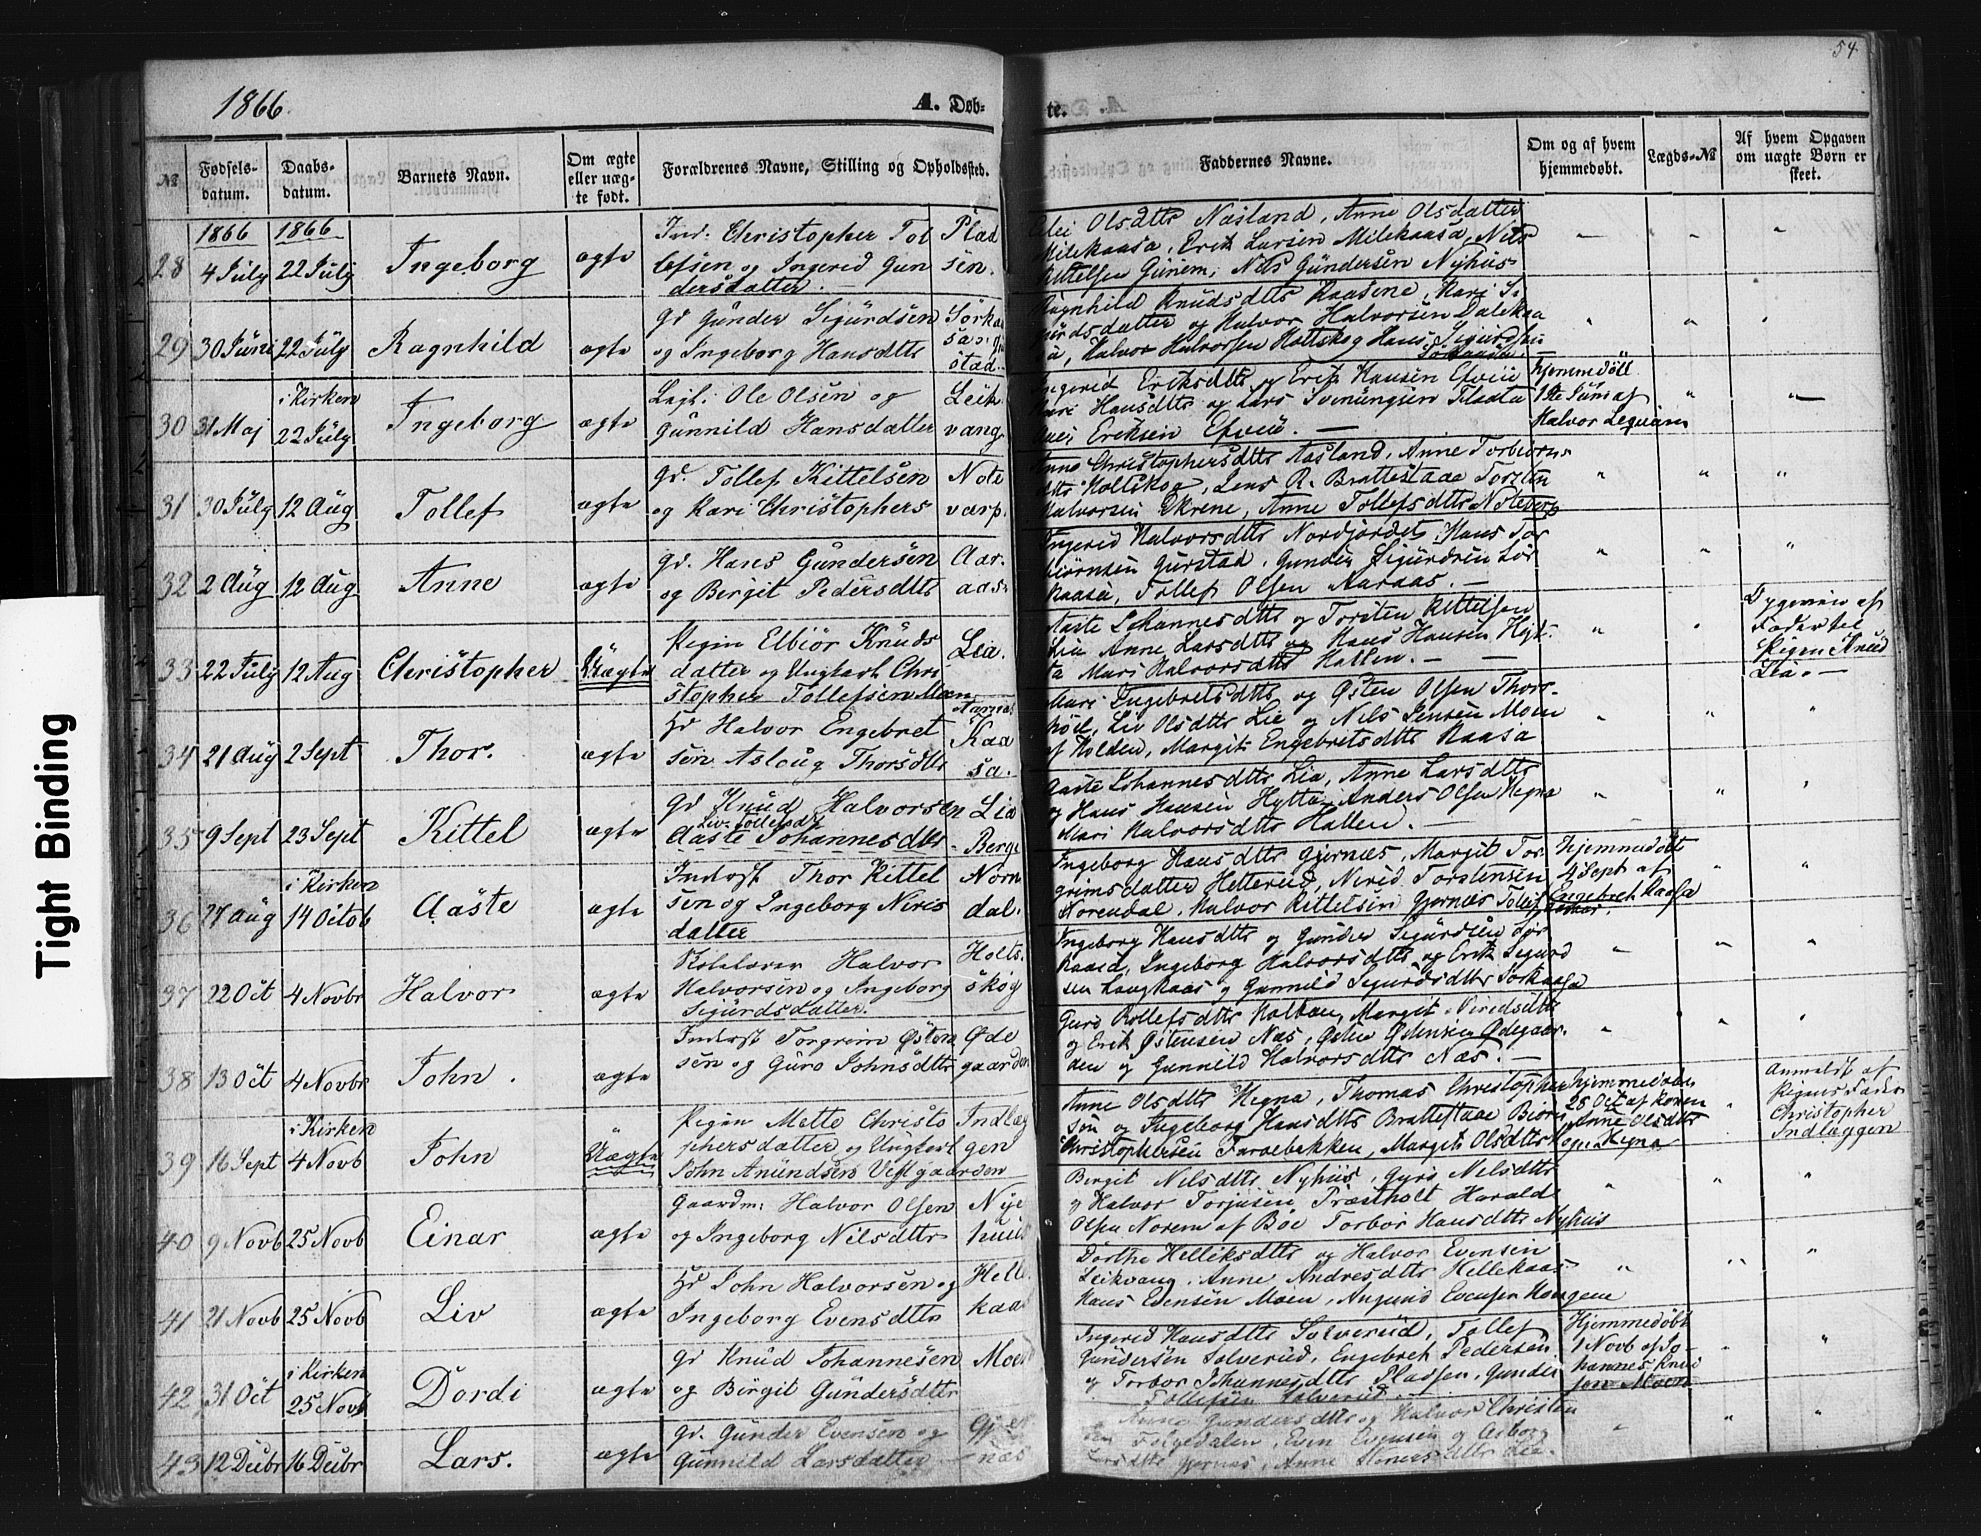 54
1866.
A. Døb-
te.
№
Fødsels-
datum.
Daabs-
datum.
Barnets Navn.
Om ægte
eller uæg-
te født.
Forældrenes Navne, Stilling og Opholdssted.
Faddernes Navne.
Om og af hvem
hjemmedøbt.
Lægds-№
Af hvem Opgaven
om uægte Børn er
skeet.
1866 1866
28 4 July 22 July Ingeborg ægte
Ind. Christopher Tol Plad
lefsen og Ingerid Gun sen.
dersdatter.
Olsdttr Næsland, Anne Olsdatter
Milekaasa, Erik Larsen Milekaasa, Nels
Kittelsen Gunem, Nels Gundersen Nyhus
29 30 Juni 22 July Ragnhild ægte
Gd Gunder Sigurdsen
og Ingeborg Hansdttr
stad.
Ragnhild Knudsdttr Kaasene, Kari Si
gurdsdatter og Halvor Halvorsen Dalekaa
sa, Halvor Halvorsen Holtskog Hans Sigurdsen
Sørkaasa.
30 31 Maj i Kirken
22 July Ingeborg ægte
Ole Olsen og Leik
Gunnild Hansdatter vang
Ingerid Eriksdttr og Erik Hansen
Kari Hansdttr og Lars Svenungsen Flaata
Eriksen
hjemmedøbt
1ste Juni af
Halvor
31 30 July 12 Aug Tollef ægte
Gd. Tollef Kittelsen Note
og Kari Christophers varp.
Anne Christophersdttr Aasland, Anne Torbiørns
dttr Holtskog, R. Brattestaae Torsten
Halvorsen Økrene, Anne Tollefsdttr Notevarp
32 2 Aug 12 Aug Anne ægte
Gd. Hans Gundersen Aar
og Birgit Pedersdttr aas.
Ingerid Halvorsdttr Nordjordet Hans Tor
biørnsen Gurstad, Gunder Sigurdsen Sør
kaasa, Tollef Olsen Aaraas.
33 22 July 12 Aug Christopher Uægte
Pigen Elbiør Knuds Lia.
datter og Ungkarl Chri
stopher Tollefsen Moen
Aaste Johannesdttr og Torsten Kittelsen
Lia Anne Larsdttr og Hans Hansen Hyt
ta Mari Halvorsdttr Hallen.
af
Fader til
Pigen Knud
Lia.
34 21 Aug 2 Sept Thor. ægte
Gd Halvor Engebret Kaa
sen Aslaug Thorsdttr sa.
Mari Ingebretsdttr og Østen Olsen Thors
Liv Olsdttr Lie og Nils Jensen Moen
af Holden, Margit Engebretsdttr Kaasa
35 9 Sept 23 Sept Kittel ægte
Gd Knud Halvorsen Lia
Liv Tollefsdtr
Aaste Johannesdttr Berge
Aaste Johannesdttr Lia, Anne Larsdttr
og Hans Hansen Hytta Anders Olsen Hegna
Mari Halvorsdttr Hallen.
36 27 Aug i Kirken
14 Octob Aaste ægte
Inderst Thor Kittel Norn
sen og Ingeborg Niris dal.
datter
Ingeborg Hansdttr Gjernes, Margit Tor
grimsdatter Hetterud, Nerid Torstensen
Norendal, Halvor Kittelsen Gjernes
hjemmedøbt
4 Sept af
Engebret Kaasa
37 22 Oct 4 Novbr Halvor ægte
Skolelærer Halvor Holts
Halvorsen og Ingeborg skog
Sigurdsdatter.
Ingeborg Hansdttr og Gunder Sigurdsen Sør
kaasa, Ingeborg Halvorsdttr og Erik Sigurd
sen Langkaas og Gunnild Sigurdsdttr Sørkaasa
38 13 Oct 4 Novbr John. ægte
Inderst Torgrim Østen Øde
sen og Guro Johnsdttr gaarden
Guro Rollefsdttr Margit Niridsdttr
og Erik Østensen Næs, Østen Østensen Ødegaar
den og Gunnild Halvorsdttr Næs.
39 16 Sept i Kirken
4 Novb John Uægte
Pigen Mette Christo Indlæg
phersdatter og Ungkarl gen
John Amundsen Vestgaarden
Anne Olsdttr Hegna, Thomas Christopher
sen og Ingeborg Hansdttr Brattestaae Biørn
Christophersen Farvebekken, Margit Olsdttr
hjemmedøbt
28 Oct af konen
Anne Olsdttr
Hegna
Anmeldt af
Pigens Fader
Christopher
Indlæggen
40 9 Novb 25 Novb Einar ægte
Gaardm. Halvor Olsen Nye
og Ingeborg Nilsdttr huus
Birgit Nelsdttr Nyhus, Gyro Nelsdttr
og Halvor Torjusen Præstholt Harald
Olsen Norem af Bøe Torbør Hansdttr Nyhus
41 21 Novb 25 Novb Liv ægte
Gd John Halvorsen og Helle
Ingeborg Evensdttr kaas
Dorthe Helleksdttr og Halvor Evensen
Leikvang. Anne Andresdttr Hellekaas
Hans Evensen Moen, Amund Evensen Haugene
42 31 Oct i Kirken
25 Novb Dordi ægte
Gd Knud Johannesen Moen
og Birgit Gundersdttr
Ingerid Hansdttr Solverud, Tollef
Gundersen Solverud, Engebret Pedersen
og Torbor Johannesdttr Pladsen, Gunder
Tollefsen Solverud
Hjemmedøbt
1 Novb af Jo
hannes Knud
sen Moen
43 12 Decbr 16 Decbr Lars. ægte
Gd. Gunder Evensen og Gjer
Gunnild Larsdatter næs
Anne Gundersdttr og Halvor Christen
sen Folgedalen, Even Evensen og Asborg
Larsdttr Gjernæs, Anne Lia.
Tight Binding